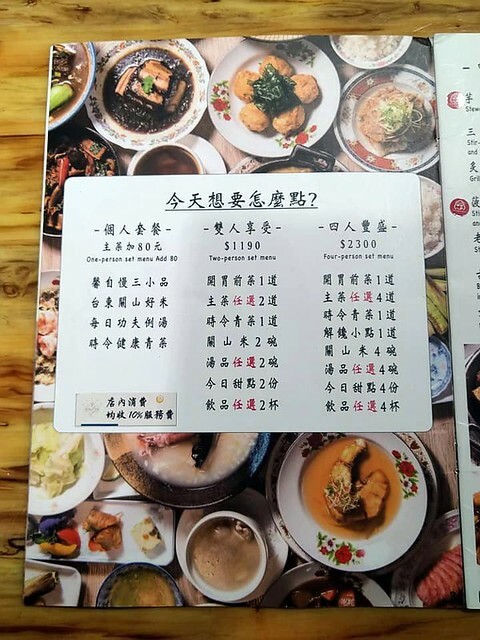 今天想要怎麼點?
-個人套餐-
主菜加80元
One-person set menu Add 80
馨自慢三小品
台東關山好米
每日功夫例湯
時令健康青菜
-雙人享受-
$1190
Two-person set menu
開胃前菜1道
主菜任選2道
時令青菜1道
關山米2碗
湯品任選2碗
今日甜點2份
飲品任選2杯
-四人豐盛-
$2300
Four-person set menu
開胃前菜1道
主菜任選4道
時令青菜1道
解饞小點1道
關山米4碗
湯品任選4碗
今日甜點4份
飲品任選4杯
店內消費
均收10%服務費
芋
Stew
三
Stir-
and
炙
Gril
老